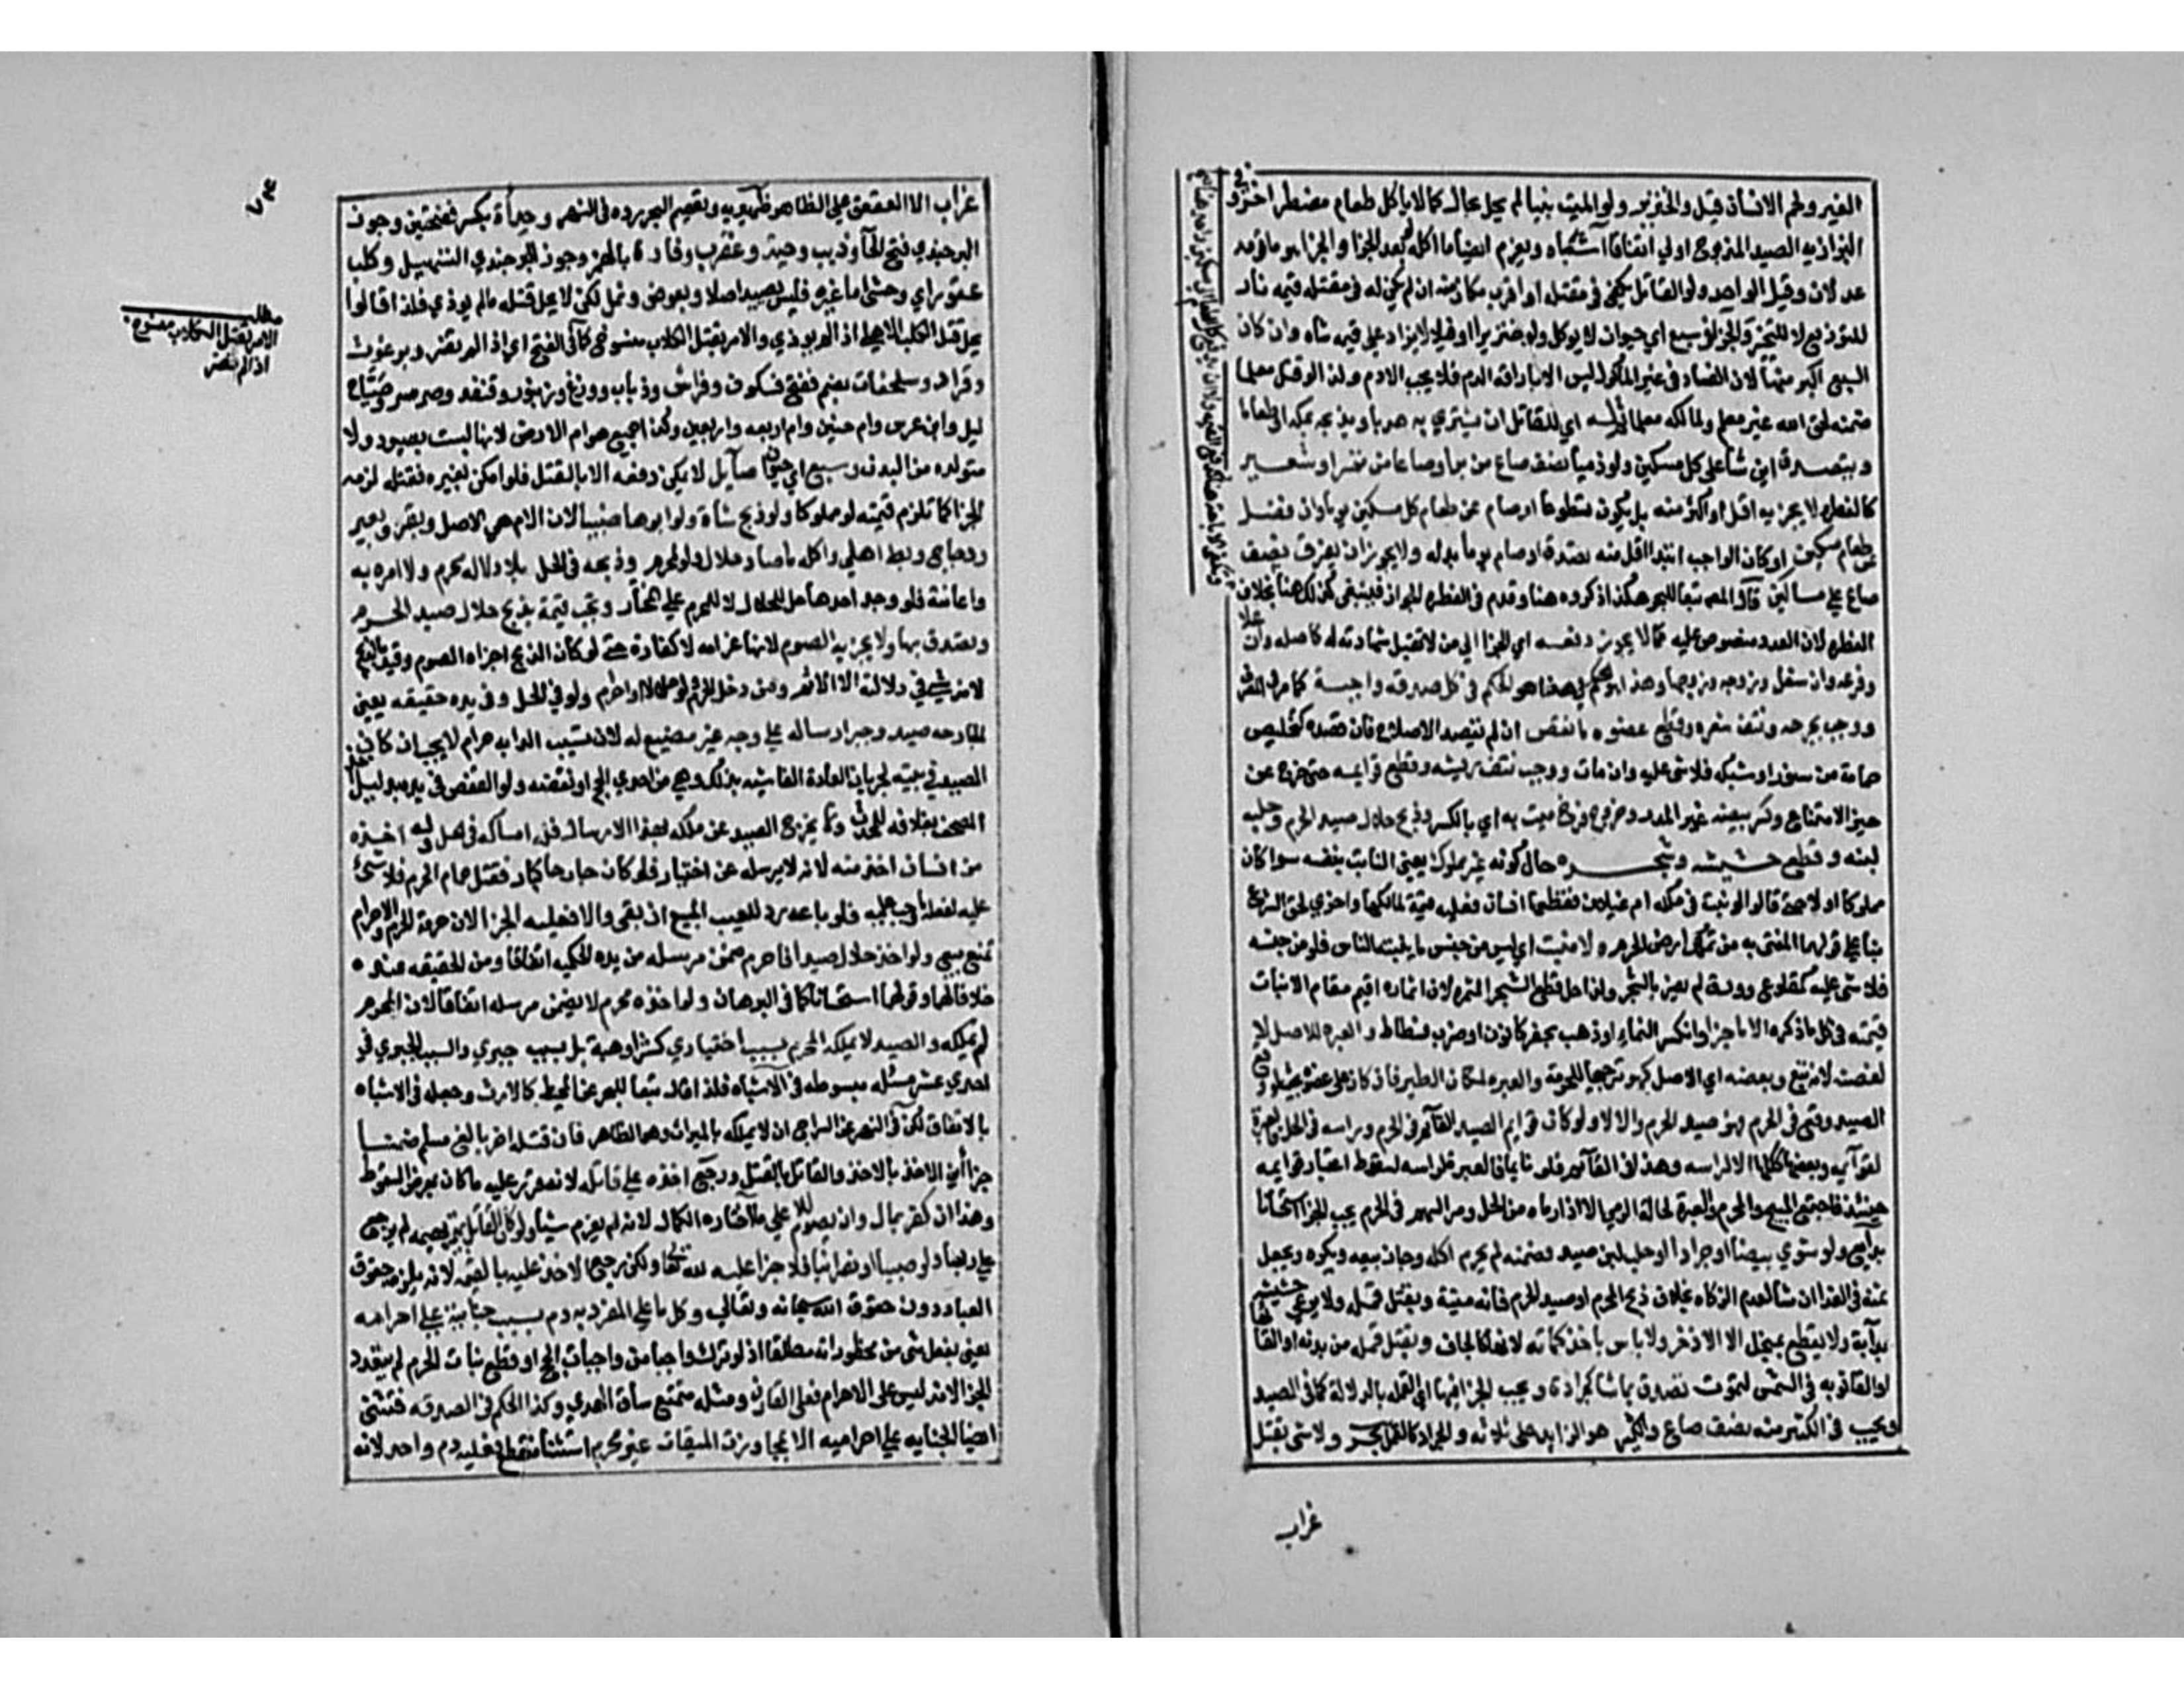 الغير ولحم الانسان قيل والخنزير ولو الميت نبيا لم يحل بحال كما لا ياكل طعام مضطر اخر وفي
البزازيه الصيد المذبوح اولي اتفاقا اشباه ويغرم ايضا ما اكله لو بعد الجزا والجزا هو ما قومه
عدلان وقيل الواحد ولو القاتل يكفي في مقتله او اقرب مكان منه ان لم يكن له في مقتله قيمه
للتوزيع لا للتخير والجزا في سبع اي حيوان لا يوكل ولو خنزيرا او فيلا لا يزاد علي قيمه شاه وان كان
السبع اكبر منها لان الفساد في غير الماكول ليس الا باراقه الدم فلا يجب الا دم وكذا لو قتل معلما
ضمنه لحق الله غير معلم ولمالكه معلما ثم له اي للقاتل ان يشتري به هديا ويذبحه بمكه او طعاما
ويتصدق اين شا علي كل مسكين ولو ذميا نصف صاع من بر او صاعا من تمر او شعير
كالفطره لا يجزيه اقل او اكثر منه بل يكون تطوعا او صام عن طعام كل مسكين يوما وان فضل
عن طعام مسكين او كان الواجب ابتدا اقل منه تصدق به او صام يوما بدله ولا يجوز ان يفرق نصف
صاع علي مساكين قال المص تبعا للبحر هكذا ذكروه هنا وقدم في الفطره الجواز فينبغي كذلك هنا بخلاف
الفطره لان العدد منصوص عليه كما لا يجوز دفعه اي الجزا الي من لا تقبل شهادته له كاصله وان علا
وفرعه وان سفل وزوجه وزوجها وهذا هو الحكم في كل صدقه واجبة كما مر في المصرف
ووجب بجرحه ونتف شعره وقطع عضوه ما نقص ان لم يقصد الاصلاح فان قصده كتخليص
حمامة من سنور او شبكه فلا شي عليه وان مات ووجب بنتف ريشه وقطع قوايمه حتى خرج عن
حيز الامتناع وكسر بيضه غير المذر وخروج فرخ ميت به اي بالكسر وذبح حلال صيد الحرم وحلبه
لبنه وقطع حشيشه وشجره حال كونه غير مملوك يعني النابت بنفسه سوا كان
مملوكا او لا حتى قالوا لو نبت في ملكه ام غيلان فقطعها انسان فعليه قيمة لمالكها واخرى لحق الشرع
بنا علي قولهما المفتى به من تملك ارض الحرم ولا منبت اي ليس من جنس ما ينبته الناس فلو من جنسه
فلا شي عليه كمقلوع وورق لم يضر بالشجر ولذا حل قطع الشجر المثمر لان اثماره اقيم مقام الانبات
قيمته في كل ما ذكر الا ما جف او انكسر لعدم النماء او ذهب بحفر كانون او ضرب فسطاط والعبره للاصل لا
لغصنه لانه تبع وبعضه اي الاصل كهو ترجيحا للحرمة والعبره لمكان الطير فان كان على غصن بحيث لو وقع
الصيد وقع في الحرم فهو صيد الحرم والا لا ولو كان قوايم الصيد القائم في الحرم وراسه في الحل فالعبرة
لقوائمه وبعضها ككلها لا لراسه وهذا في القائم فلو نايما فالعبره لراسه لسقوط اعتبار قوايمه
حينئذ فاجتمع المبيح والمحرم والعبرة لحالة الرمي الا اذا رماه من الحل ومر السهم في الحرم يجب الجزا استحسانا
بدائع ولو شوي بيضا او جرادا او حلب لبن صيد فضمنه لم يحرم اكله وجاز بيعه ويكره ويجعل
ثمنه في الفدا ان شا لعدم الذكاه بخلاف ذبح المحرم او صيد الحرم فانه ميتة ولا يرعي حشيشه
بدابة ولا يقطع بمنجل الا الاذخر ولا باس باخذ كماته لانها كالجاف وبقتل قمله من بدنه او القائها
او القا ثوبه في الشمس لتموت تصدق بما شا كجرادة ويجب الجزا فيها اي القمله بالدلالة كما في الصيد
ويجب في الكثير منه نصف صاع والكثير هو الزايد على ثلاثه والجراد كالقمل بحر ولا شي بقتل
غراب
٧٤
غراب الا العقعق علي الظاهر ظهيريه وتعميم البحر رده في النهر وحدأة بكسر ففتحتين وجوز
البرجندي فتح الحاء وذيب وحية وعقرب وفارة بالهمز وجوز البرجندي التسهيل وكلب
عقور اي وحشي اما غيره فليس بصيد اصلا وبعوض ونمل لكن لا يحل قتله ما لم يوذي فلذا قالوا
يحل قتل الكلب الاهلي اذا لم يوذي والامر بقتل الكلاب منسوخ كما في الفتح اي اذا لم تضر وبرغوث
وقراد وسلحفاة بضم ففتح فسكون وفراش وذباب ووزغ وزنبور وقنفد وصرصر وصياح
ليل وابن عرس وام حبين وام اربعه واربعين وكذا جميع هوام الارض لانها ليست بصيود ولا
متولده من البدن وسبع اي حيوان صائل لا يمكن دفعه الا بالقتل فلو امكن بغيره فقتله لزمه
الجزا كما تلزم قيمته لو مملوكا وله ذبح شاة ولو ابوها ظبيا لان الام هي الاصل وبقر وبعير
ودجاج وبط اهلي واكل ما صاده حلال ولو لمحرم وذبحه في الحل بلا دلاله محرم ولا امره به
واعانته فلو وجد احدها حل للحلال لا للمحرم علي المختار وتجب قيمة بذبح حلال صيد الحرم
وتصدق بها ولا يجزيه الصوم لانها غرامه لا كفارة حتى لو كان الذابح اجزاه الصوم وقيد بالذبح
لانه لا شي في دلالته الا الاثم ومن دخل الحرم ولو حلالا او احرم ولو في الحل وفي يده حقيقه يعني
الجارحه صيد وجب ارساله علي وجه غير مضيع له لان تسييب الدابه حرام لا يجب ان كان
الصيد في بيته لجريان العادة الفاشيه بذلك وهي من احدي الحجج او قفصه ولو القفص في يده بدليل
المصحف بغلافه للمحدث ولا يخرج الصيد عن ملكه بهذا الارسال فله امساكه في الحل وله اخذه
من انسان اخذه منه لانه لا يرسله عن اختيار فلو كان جارحا كباز فقتل حمام الحرم فلا شئ
عليه لفعله ما وجب عليه فلو باعه رد المبيع ان بقي والا فعليه الجزا لان حرمة الحرم والاحرام
تمنع بيع ولو اخذ حلال صيدا فاحرم ضمن مرسله من يده الحكميه اتفاقا ومن الحقيقه عنده
خلافا لهما وقولهما استحسانا كما في البرهان ولو اخذه محرم لا يضمن مرسله اتفاقا لان المحرم
لم يملكه والصيد لا يملكه المحرم بسبب اختياري كشرا وهبة بل بسبب جبري والسبب الجبري في
احدي عشر مسئله مبسوطه في الاشباه فلذا قال تبعا للبحر عن المحيط كالارث وجعله في الاشباه
بالاتفاق لكن في النهر عن السراج انه لا يملكه بالميراث وهو الظاهر فان قتله اخر بالغ مسلم ضمنا
جزائين الاخذ بالاخذ والقاتل بالقتل ورجع اخذه علي قاتله لانه قرر عليه ما كان بمعرض السقوط
وهذا ان كفر بمال وان بصوم فلا علي ما اختاره الكمال لانه لم يغرم شيئا ولو كان القاتل بهيمه لم يرجع
علي ربها ولو صبيا او نصرانيا فلا جزا عليه لله تعالي ولكن رجع الاخذ عليه بالقيمه لانه يلزمه حقوق
العباد دون حقوق الله سبحانه وتعالي وكل ما علي المفرد به دم بسبب جنايته علي احرامه
يعني بفعل شي من محظوراته مطلقا اذ لو ترك واجبا من واجبات الحج او قطع نبات الحرم لم يتعدد
الجزا لانه ليس على الاحرام فعلى القارن ومثله متمتع ساق الهدي وكذا الحكم في الصدقه فتثنى
ايضا لجنايه علي احراميه الا بمجاوزه الميقات غير محرم استثنا منقطع فعليه دم واحد لانه
مطلب
الامر بقتل الكلاب منسوخ
اذا لم تضر